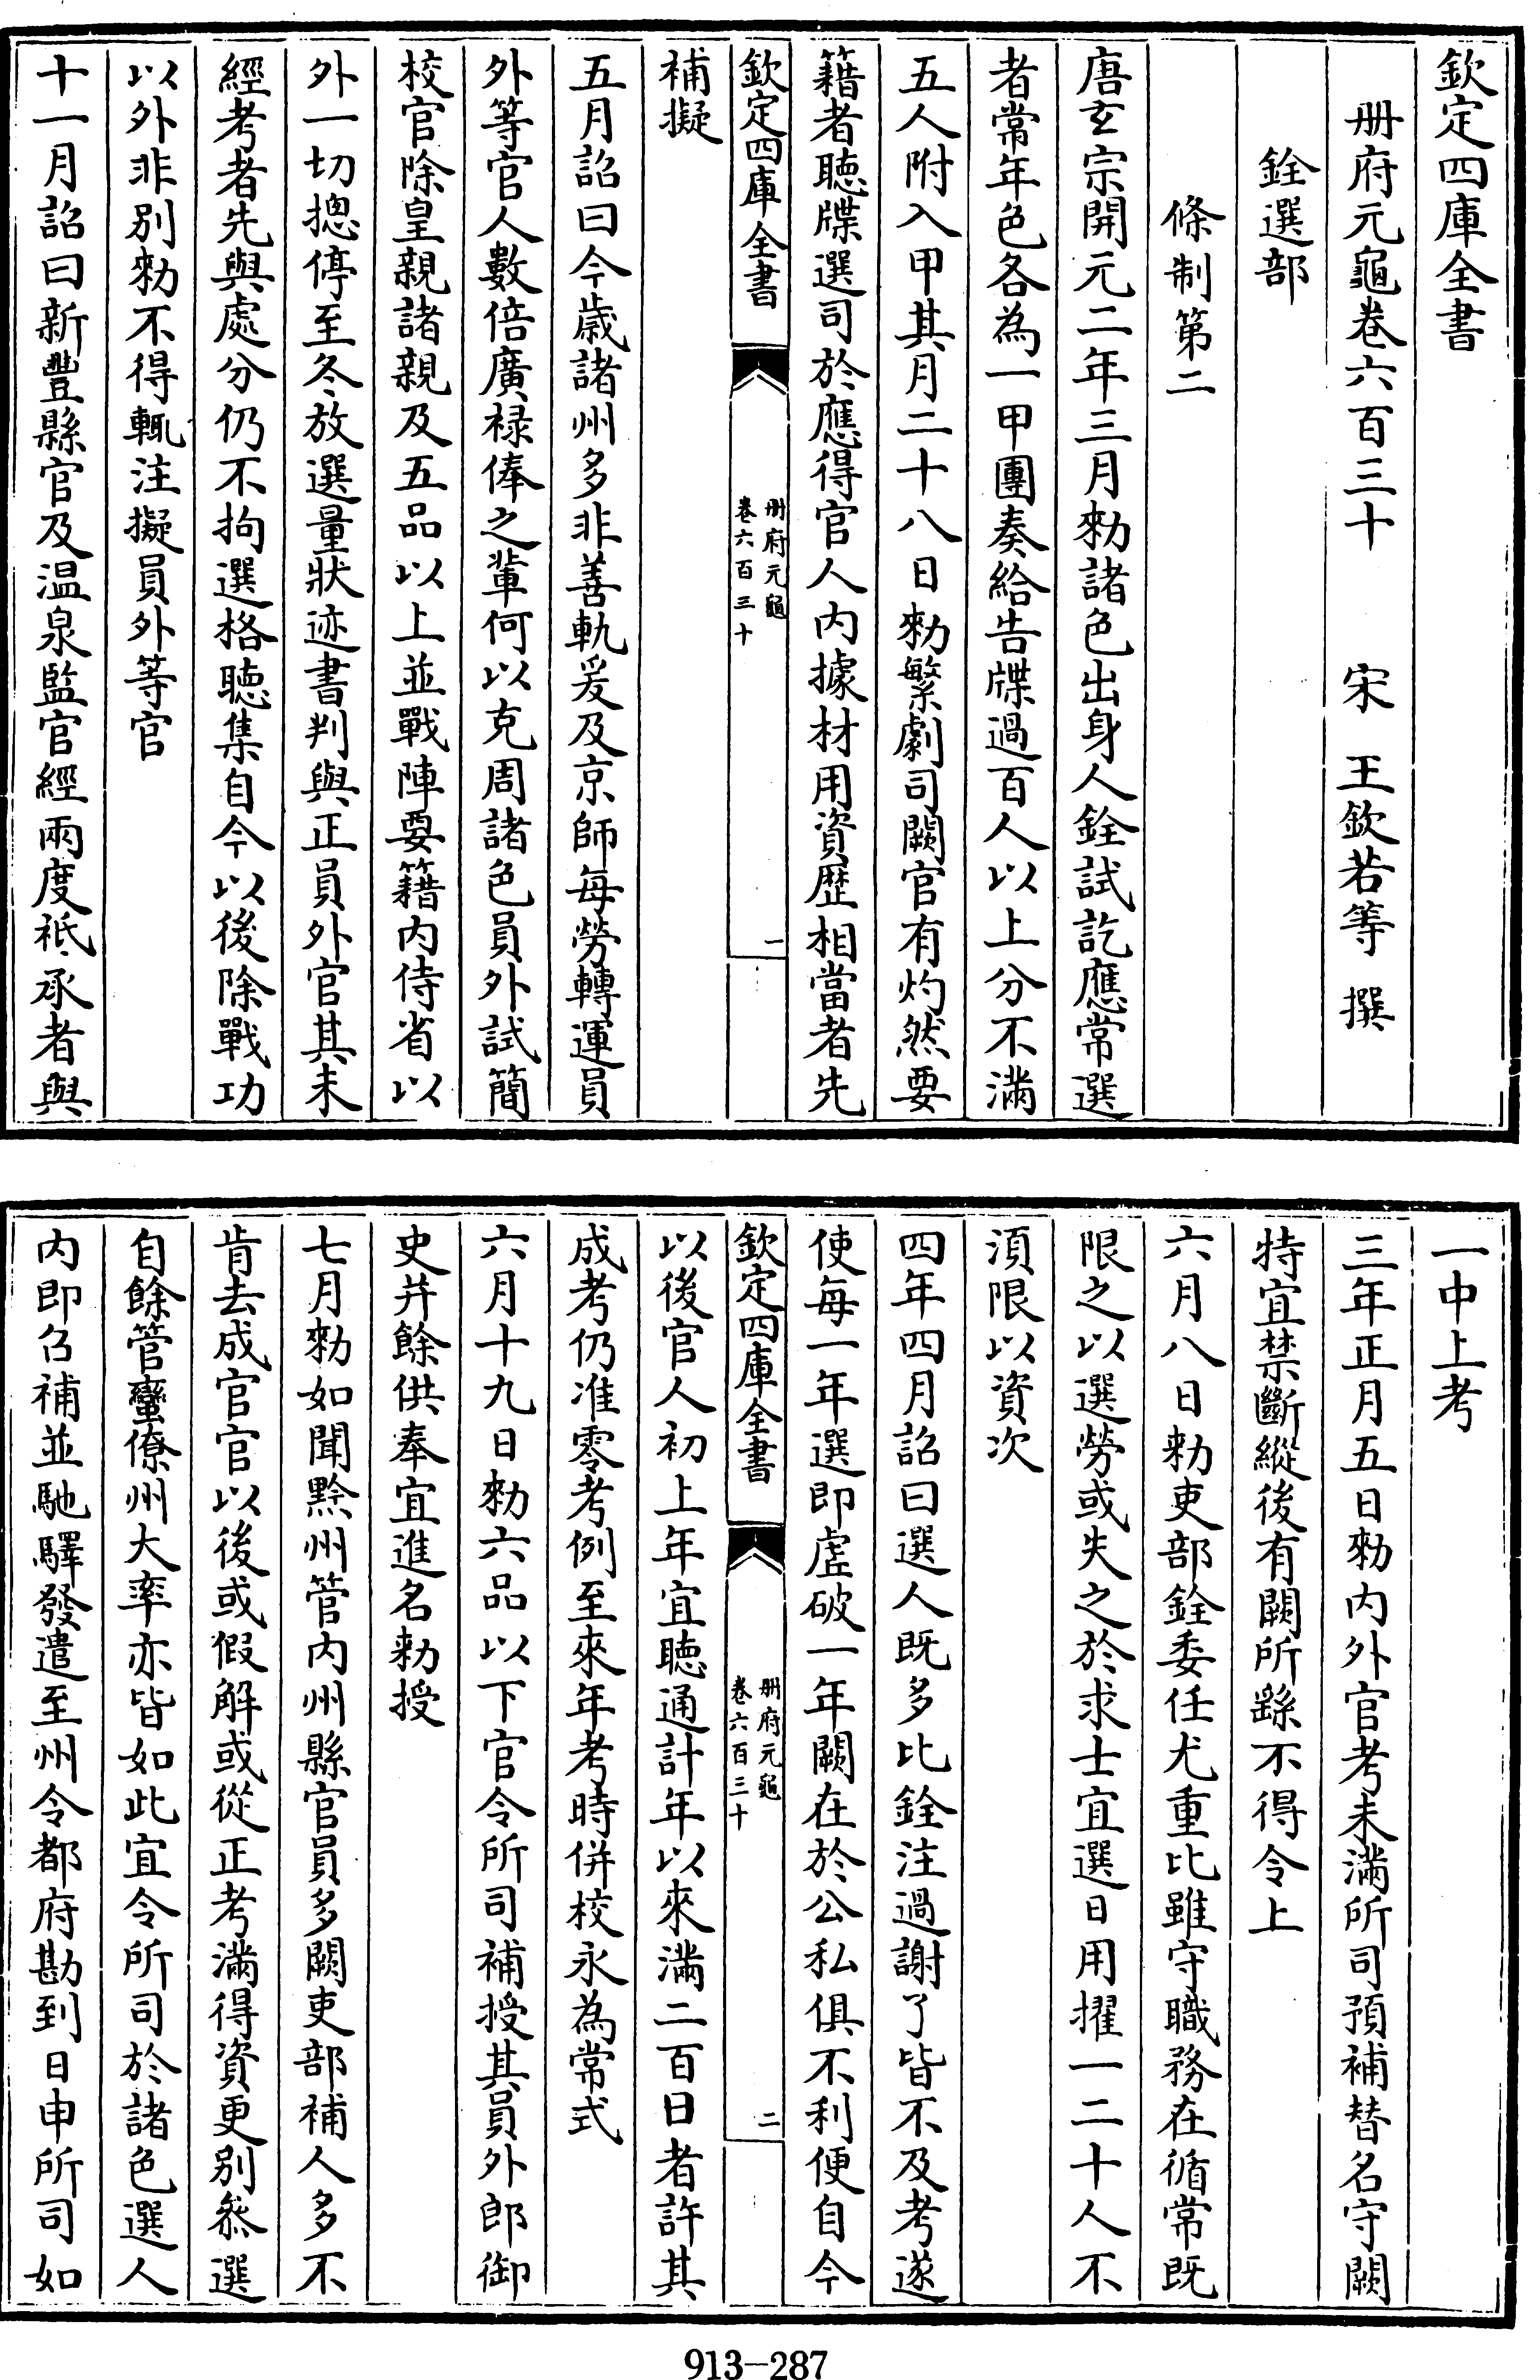 欽定四庫全書
册府元龜卷六百三十　宋　王欽若等　撰
銓選部
條制第二
唐玄宗開元二年三月勅諸色出身人銓試訖應常選
者常年色各為一甲團奏給告牒過百人以上分不滿
五人附入甲其月二十八日勅繁劇司闕官有灼然要
籍者聽牒選司於應得官人内據材用資歴相當者先
欽定四庫全書
册府元龜
卷六百三十
一
補擬
五月詔曰今歲諸州多非善軌爰及京師每勞轉運員
外等官人數倍廣禄俸之輩何以克周諸色員外試簡
校官除皇親諸親及五品以上並戰陣要籍内侍省以
外一切摠停至冬放選量狀迹書判與正員外官其未
經考者先與處分仍不拘選格聽集自今以後除戰功
以外非别勅不得輒注擬員外等官
十一月詔曰新豐縣官及温泉監官經兩度祗承者與
一中上考
三年正月五日勅内外官考未滿所司預補替名守闕
特宜禁斷縱後有闕所繇不得令上
六月八日勅吏部銓委任尤重比雖守職務在循常既
限之以選勞或失之於求士宜選日用擢一二十人不
湏限以資次
四年四月詔曰選人既多比銓注過謝了皆不及考遂
使每一年選即虚破一年闕在於公私俱不利便自今
欽定四庫全書
册府元龜
卷六百三十
二
以後官人初上年宜聽通計年以來滿二百日者許其
成考仍准零考例至來年考時併校永為常式
六月十九日勅六品以下官令所司補授其員外郎御
史并餘供奉宜進名勅授
七月勅如聞黔州管内州縣官員多闕吏部補人多不
肯去成官官以後或假解或從正考滿得資更别叅選
自餘管蠻僚州大率亦皆如此宜令所司於諸色選人
内即召補並馳驛發遣至州令都府勘到日申所司如
913—287